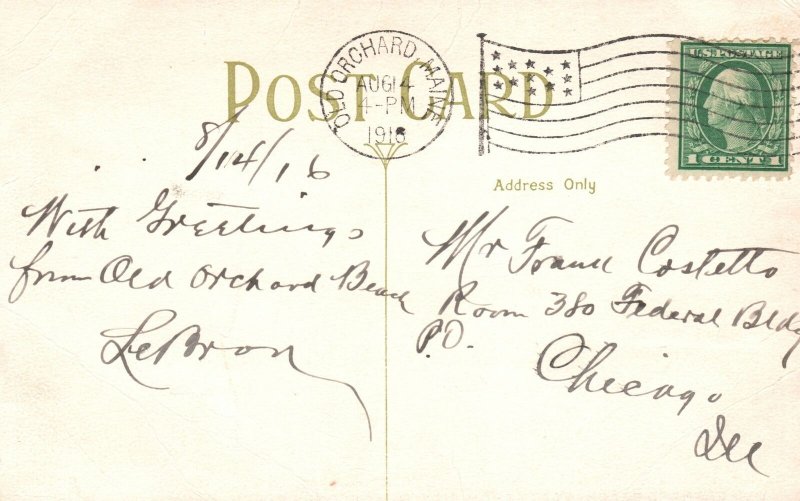 POST CARD
OLD ORCHARD, MAINE
AUG 14
4-PM
1916
U.S. POSTAGE
1 CENT 1
Address Only
8/14/16
With Greetings
from Old Orchard Beach
LeBron
Mr Frank Costello
Room 380 Federal Bldg
P.O.
Chicago
Ill